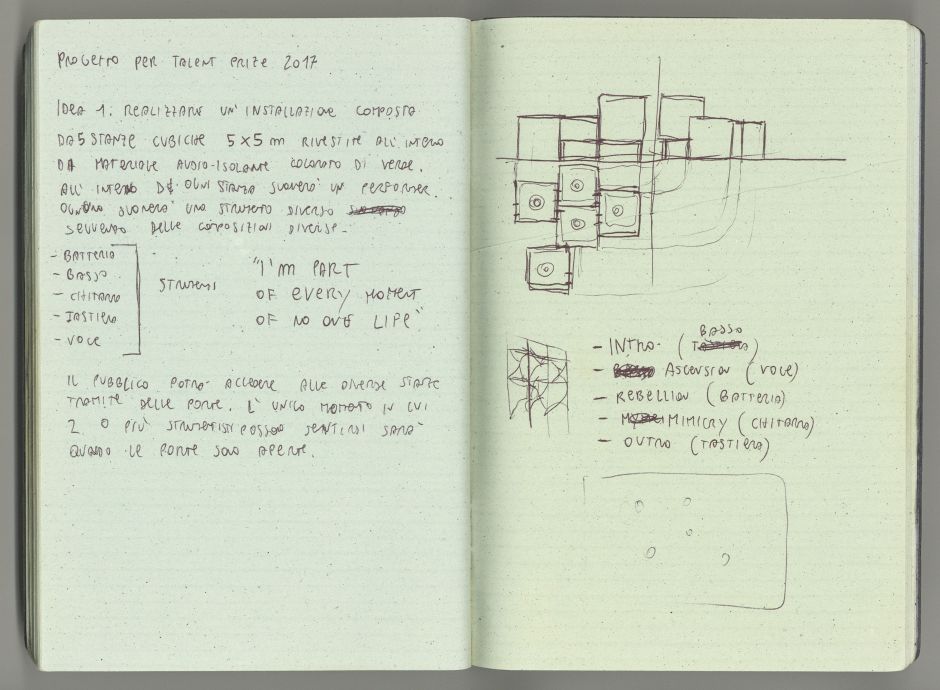 PROGETTO PER TALENT PRIZE 2017
IDEA 1. REALIZZARE UN'INSTALLAZIONE COMPOSTA
DA 5 STANZE CUBICHE 5x5 m RIVESTITE ALL'INTERNO
DA MATERIALE AUDIO-ISOLANTE COLORATO DI VERDE.
ALL'INTERNO DI OGNI STANZA SUONERA' UN PERFORMER
OGNUNO SUONERA' UNO STRUMENTO DIVERSO
SEGUENDO DELLE COMPOSIZIONI DIVERSE-
- BATTERIA
- BASSO
- CHITARRA
- TASTIERA
- VOCE
STRUMENTI
"I'M PART
OF EVERY MOMENT
OF NO ONE LIFE"
IL PUBBLICO POTRA' ACCEDERE ALLE DIVERSE STANZE
TRAMITE DELLE PORTE. L'UNICO MOMENTO IN CUI
2 O PIÙ STRUMENTISTI POSSONO SENTIRSI SARA'
QUANDO LE PORTE SONO APERTE.
- INTRO- (BASSO)
- ASCENSION (VOCE)
- REBELLION (BATTERIA)
- MIMICRY (CHITARRA)
- OUTRO (TASTIERA)